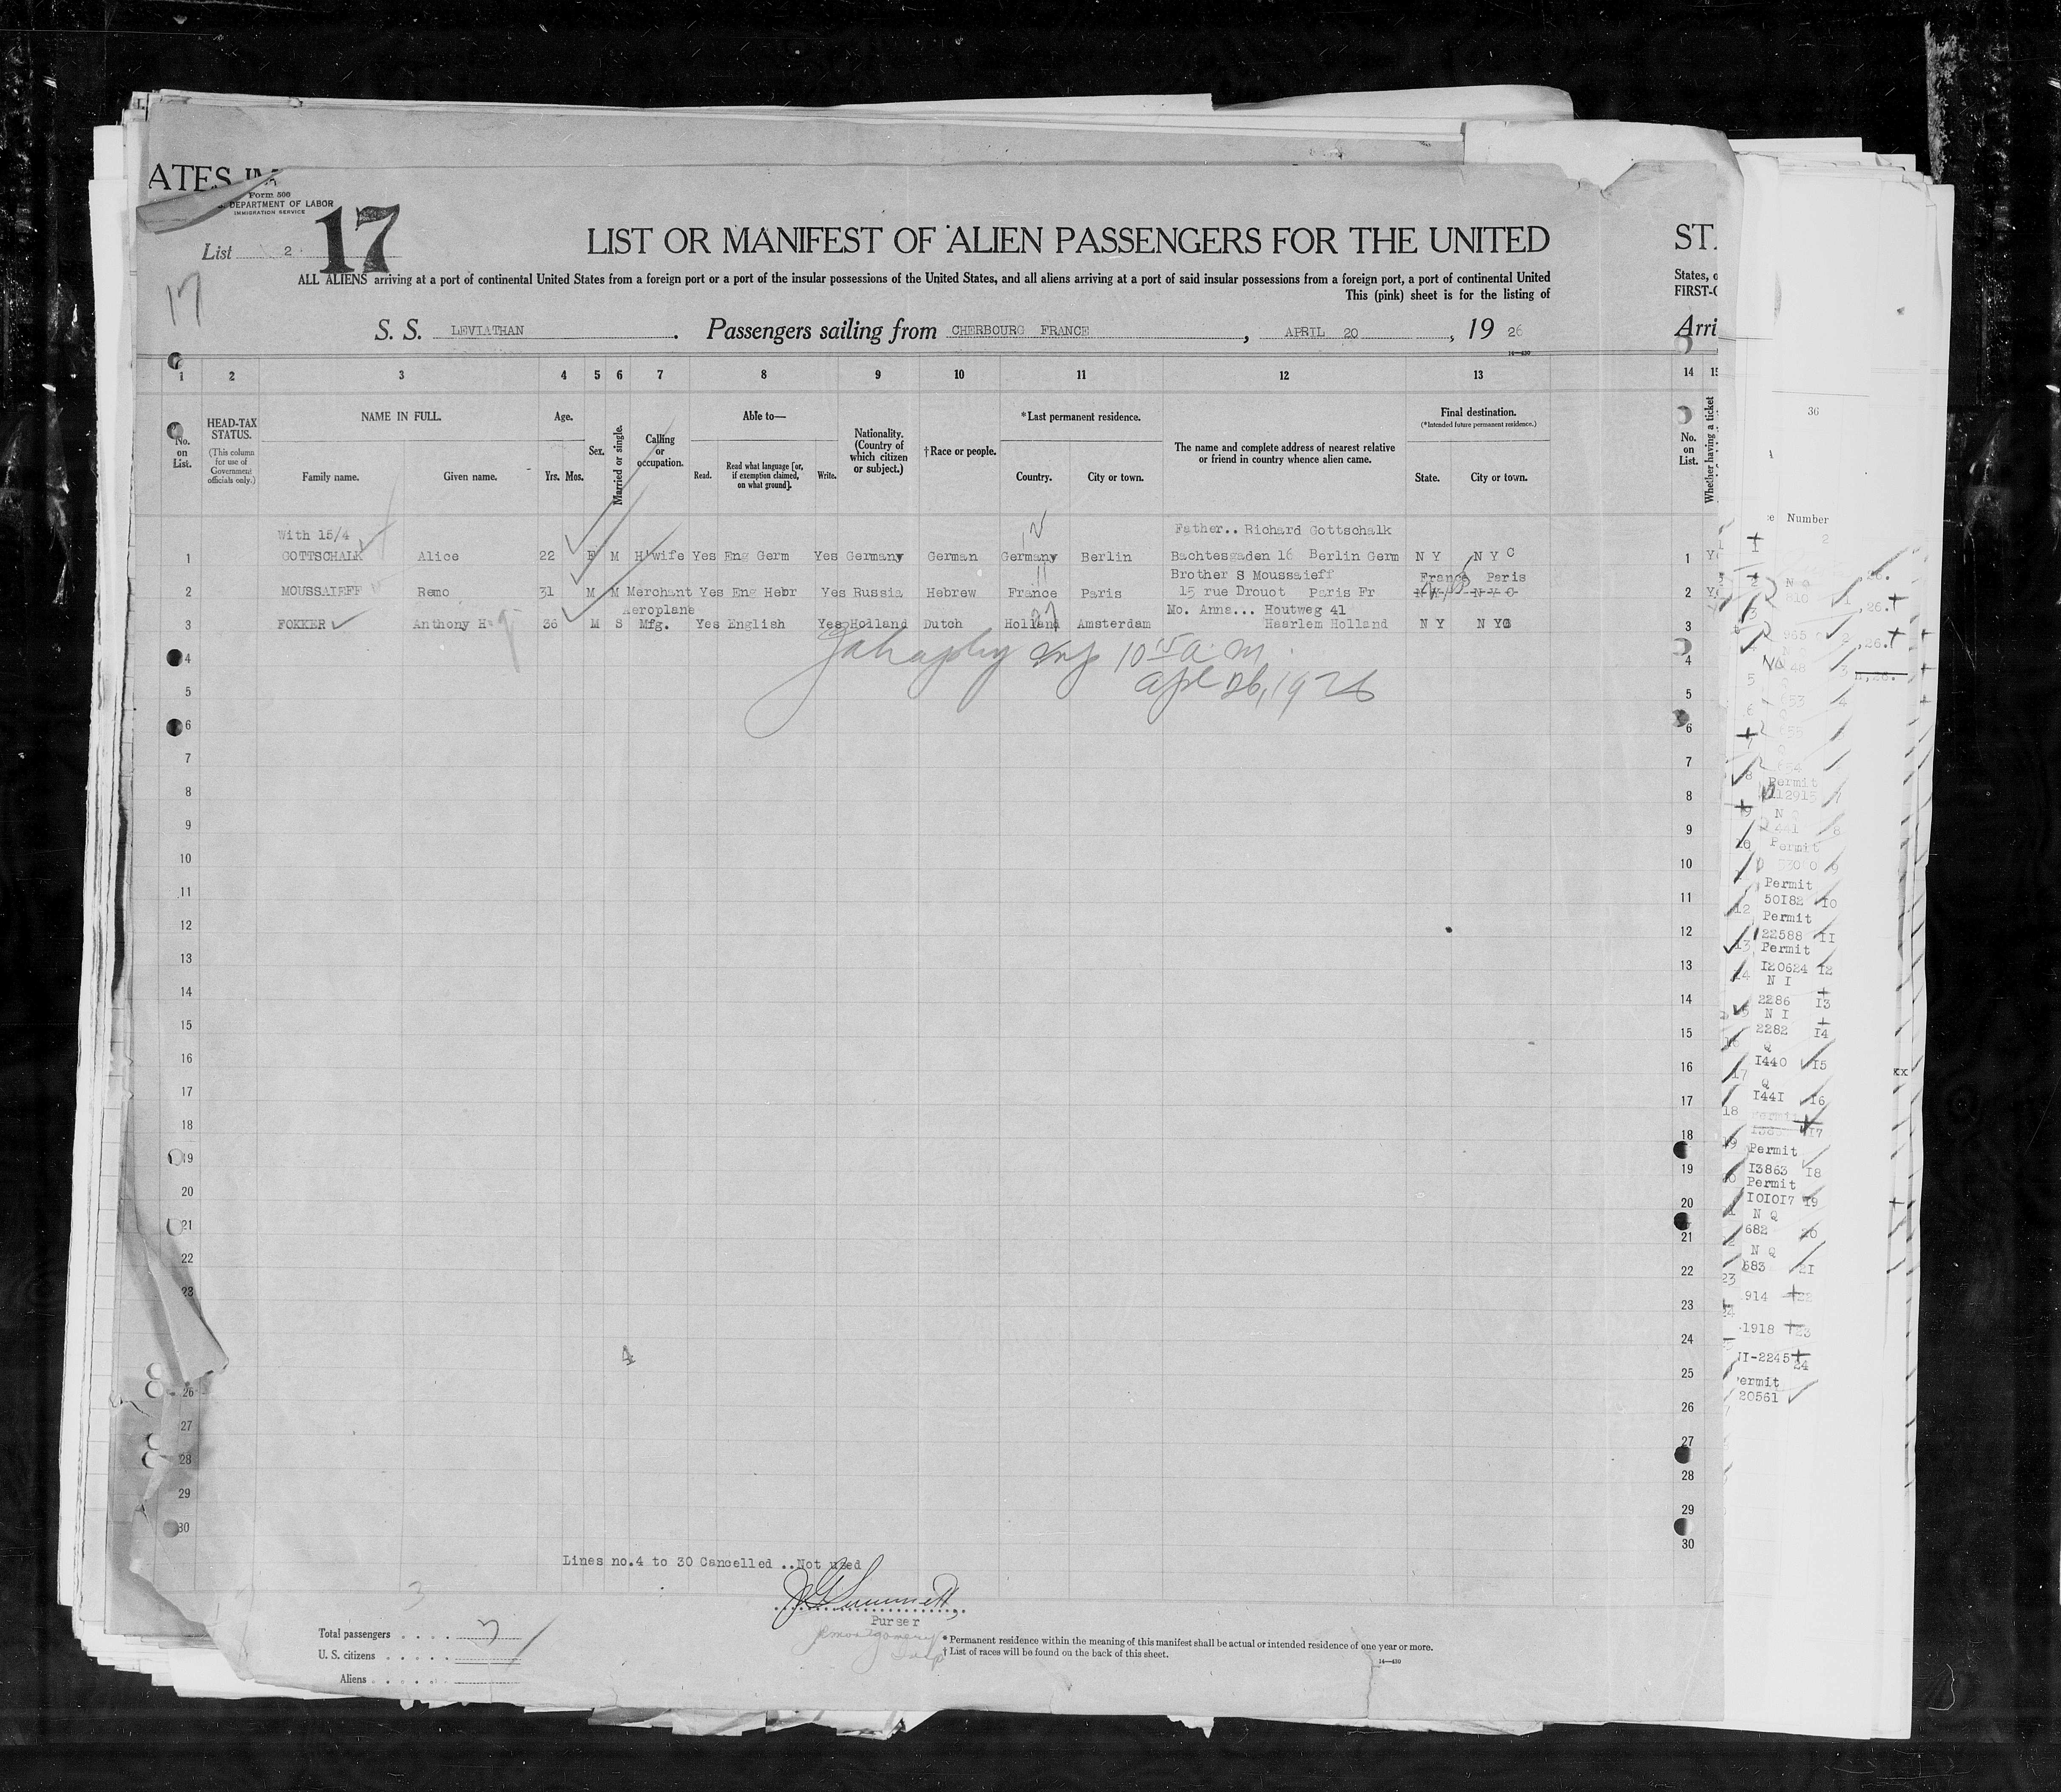 Form 500
DEPARTMENT OF LABOR
IMMIGRATION SERVICE
List 2
17
17
LIST OR MANIFEST OF ALIEN PASSENGERS FOR THE UNITED
ALL ALIENS arriving at a port of continental United States from a foreign port or a port of the insular possessions of the United States, and all aliens arriving at a port of said insular possessions from a foreign port, a port of continental United
This (pink) sheet is for the listing of
S. S. LEVIATHAN. Passengers sailing from CHERBOURG FRANCE, APRIL 20, 19 26
14—430
1 2 3 4 5 6 7 8 9 10 11 12 13
No. on List.
HEAD-TAX STATUS.
(This column for use of Government officials only.)
NAME IN FULL.
Family name. Given name.
Age.
Yrs. Mos.
Sex.
Married or single.
Calling or occupation.
Able to—
Read. Read what language [or, if exemption claimed, on what ground]. Write.
Nationality. (Country of which citizen or subject.)
†Race or people.
*Last permanent residence.
Country. City or town.
The name and complete address of nearest relative or friend in country whence alien came.
Final destination.
(*Intended future permanent residence.)
State. City or town.
With 15/4 Father.. Richard Gottschalk
1 GOTTSCHALK Alice 22 F M H'wife Yes Eng Germ Yes Germany German Germany Berlin Bachtesgaden 16 Berlin Germ N Y N Y C
Brother S Moussaieff France Paris
2 MOUSSAIEFF Remo 31 M M Merchant Yes Eng Hebr Yes Russia Hebrew France Paris 15 rue Drouot Paris Fr N Y N Y C
Aeroplane Mo. Anna... Houtweg 41
3 FOKKER Anthony H 36 M S Mfg. Yes English Yes Holland Dutch Holland Amsterdam Haarlem Holland N Y N Y C
4
5
6
7
8
9
10
11
12
13
14
15
16
17
18
19
20
21
22
23
26
27
28
29
30
4
Lines no.4 to 30 Cancelled ..Not used
Purser
Total passengers
U. S. citizens
Aliens
* Permanent residence within the meaning of this manifest shall be actual or intended residence of one year or more.
† List of races will be found on the back of this sheet.
14—430
14
No. on List.
Whether having a ticket
1
2
3
4
5
6
7
8
9
10
11
12
13
14
15
16
17
18
19
20
21
22
23
24
25
26
27
28
29
30
36
Number
Permit
Permit
Permit
50182 10
Permit
22588 11
Permit
120624 12
N I
2286 13
N I
2282 14
Q
1440 15
Q
1441 16
Permit
13863 18
Permit
101017 19
N Q
682 20
N Q
683 21
914 22
1918 23
24
20561